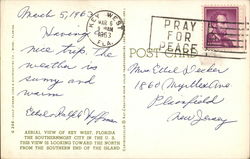 March 5, 1963
Having
nice trip. The
weather is
sunny and
warm
Ethel & Ralph
KEY WEST
MAR 6
AM
1963
FLA.
PRAY
FOR
PEACE
POST CARD
Miss Ethel Decker
1860
Plainfield
New Jersey
AERIAL VIEW OF KEY WEST, FLORIDA
THE SOUTHERNMOST CITY IN THE U. S.
THE VIEW IS LOOKING TOWARD THE NORTH
FROM THE SOUTHERN END OF THE ISLAND